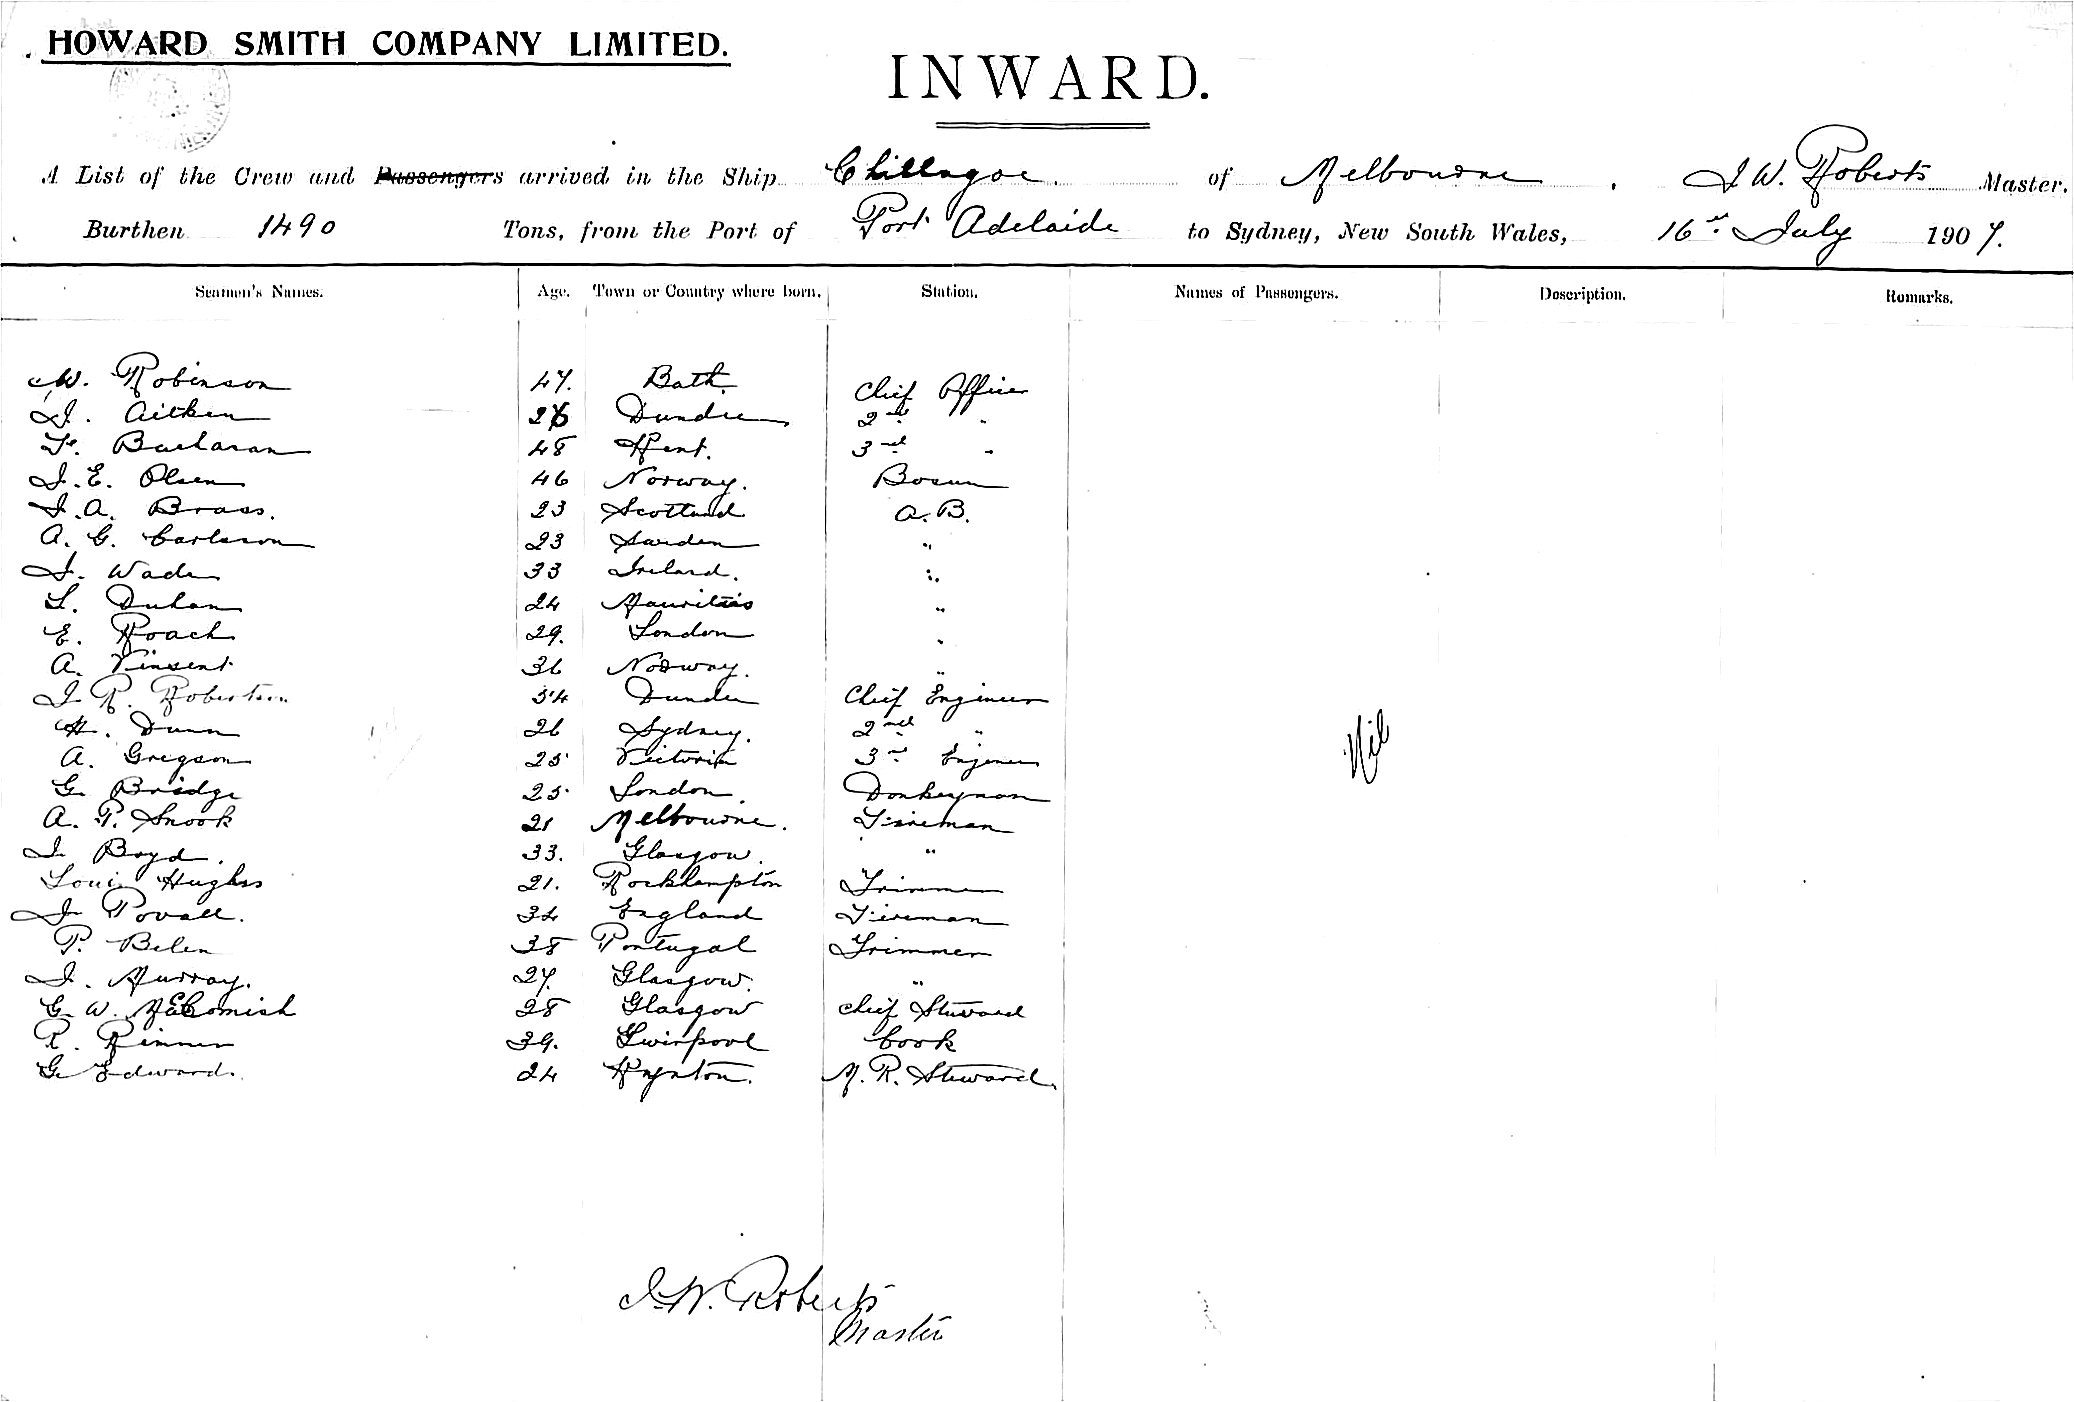 HOWARD SMITH COMPANY LIMITED.
INWARD.
A List of the Crew and Passengers arrived in the Ship Chillagoe. of Melbourne, J W. Roberts Master.
Burthen 1490 Tons, from the Port of Port Adelaide to Sydney, New South Wales, 16th July 1907.
Seamen's Names. Age. Town or Country where born. Station. Names of Passengers. Description. Remarks.
W. Robinson 47. Bath Chief Officer
J. Aitken 26 Dundee 2nd "
F. Buchanan 48 Kent. 3rd "
J. E. Olsen 46 Norway. Bosun
J. A. Brass. 23 Scotland A. B.
A. G. Carlsson 23 Sweden "
J. Wade 33 Ireland. "
L. Duhan 24 Mauritius "
E. Roach 29. London "
A. Vinsent 36 Norway. "
J R. Robertson 34 Dundee Chief Engineer
H. Dunn 26 Sydney. 2nd "
A. Gregson 25 Victoria 3rd Engineer
G. Bridge 25 London. Donkeyman
A. P. Snook 21 Melbourne. Fireman
J. Boyd. 33. Glasgow. "
Louis Hughes 21. Rockhampton Trimmer
J Povall. 34 England Fireman
P. Belen 38 Portugal Trimmer
J. Murray. 27. Glasgow. "
G. W. McComish 28 Glasgow Chief Steward
R. Rimmer 39. Liverpool Cook
G. Edward. 24 Kynton. M. R. Steward.
Nil
J. W. Roberts
Master